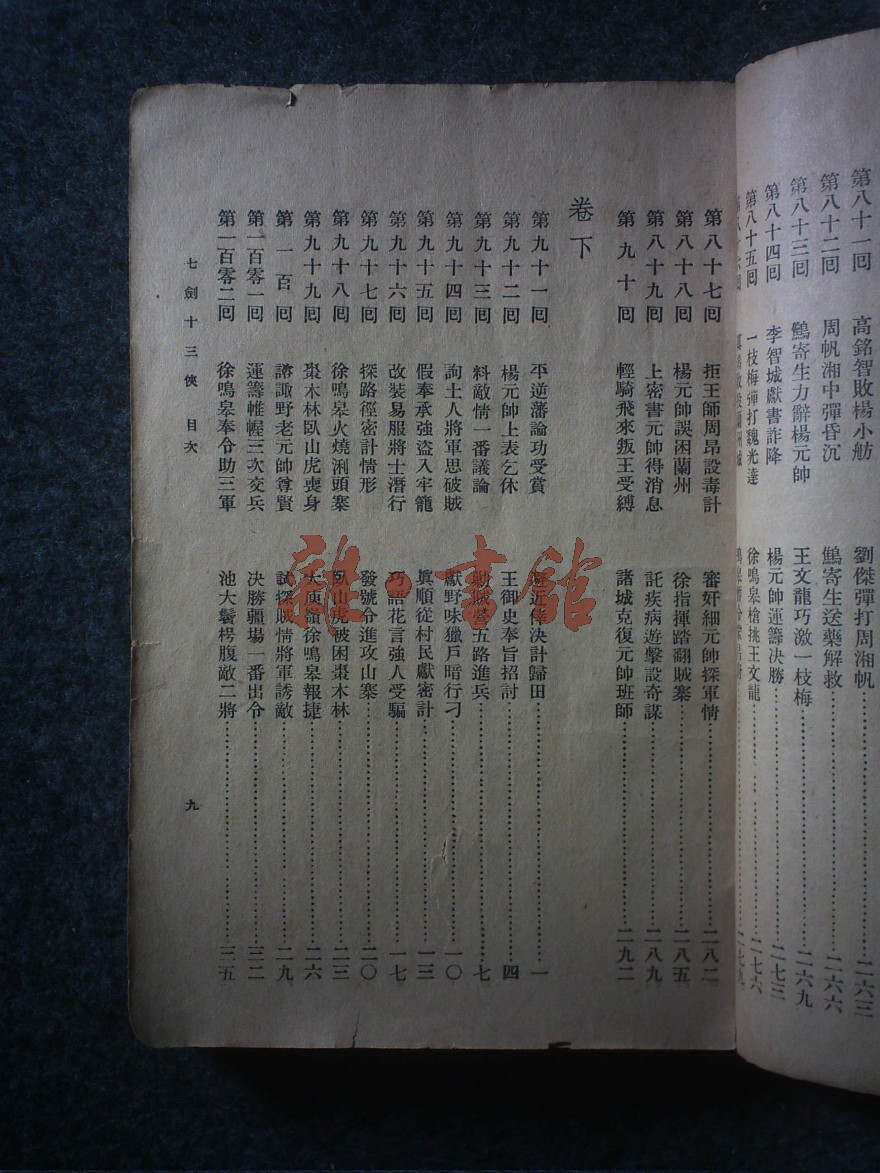 第八十一回 高銘智敗楊小舫 劉傑彈打周湘帆 二六三
第八十二回 周帆湘中彈昏沉 鷦寄生送藥解救 二六六
第八十三回 鷦寄生力辭楊元帥 王文龍巧激一枝梅 二六九
第八十四回 李智城獻書詐降 楊元帥運籌決勝 二七三
第八十五回 一枝梅彈打魏光達 徐鳴皋槍挑王文龍 二七六
第八十七回 拒王師周昂設毒計 審奸細元帥探軍情 二八二
第八十八回 楊元帥誤困蘭州 徐指揮踏翻賊寨 二八五
第八十九回 上密書元帥得消息 託疾病遊擊設奇謀 二八九
第九十回 輕騎飛來叛王受縛 諸城克復元帥班師 二九二
卷下
第九十一回 平逆藩論功受賞 近倖決計歸田 一
第九十二回 楊元帥上表乞休 王御史奉旨招討 四
第九十三回 料敵情一番議論 賊營五路進兵 七
第九十四回 詢土人將軍思破賊 獻野味獵戶暗行刁 一〇
第九十五回 假奉承強盜入牢籠 眞順從村民獻密計 一三
第九十六回 改裝易服將士潛行 巧語花言強人受騙 一七
第九十七回 探路徑密計情形 發號令進攻山寨 二〇
第九十八回 徐鳴皋火燒浰頭寨 臥山虎被困棗木林 二三
第九十九回 棗木林臥山虎喪身 大庾嶺徐鳴皋報捷 二六
第一百回 諮諏野老元帥尊賢 試探賊情將軍誘敵 二九
第一百零一回 運籌帷幄三次交兵 決勝疆場一番出令 三二
第一百零二回 徐鳴皋奉令助三軍 池大鬢枵腹敵二將 三五
七劍十三俠 目次
九
雜·書館